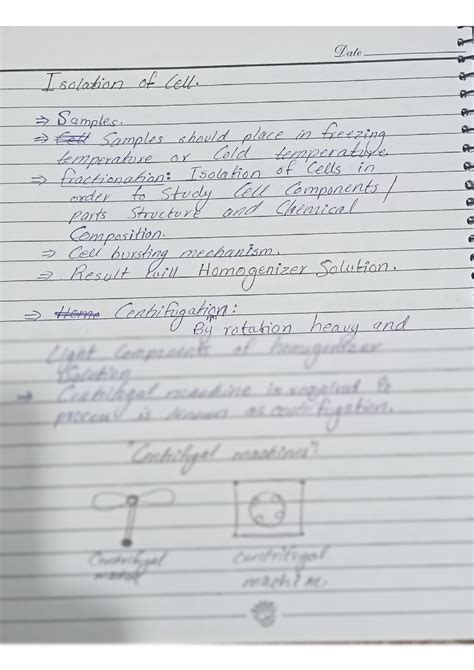 Date
Isolation of Cell.
⇒ Samples.
⇒ Cell Samples should place in freezing
temperature or Cold temperature
⇒ fractionation: Isolation of Cells in
order to Study Cell Components /
parts Structure and Chemical
Composition.
⇒ Cell bursting mechanism.
⇒ Result will Homogenizer Solution.
⇒ Homo Centrifugation:
By rotation heavy and
Light Components of homogenizer
Solution
⇒ Centrifugal machine is required &
process is known as centrifugation.
"Centrifugal machines":
Centrifugal
Centrifugal
machine.